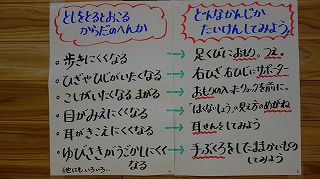 としをとるとおこる
からだのへんか
・歩きにくくなる
・ひざやひじがいたくなる
・こしがいたくなる まがる
・目がみえにくくなる
・耳がきこえにくくなる
・ゆびさきがうごかしにくく
なる
他にもいろいろ…
どんなかんじか
たいけんしてみよう。
→ 足くびにおもり。つえ。
→ 右ひざ、右ひじにサポーター
→ おもりの入ったリュックを前に。
→ 「はくないしょう」の見え方のめがね
→ 耳せんをしてみよう
→ 手ぶくろをしてこまかいもの
してみよう